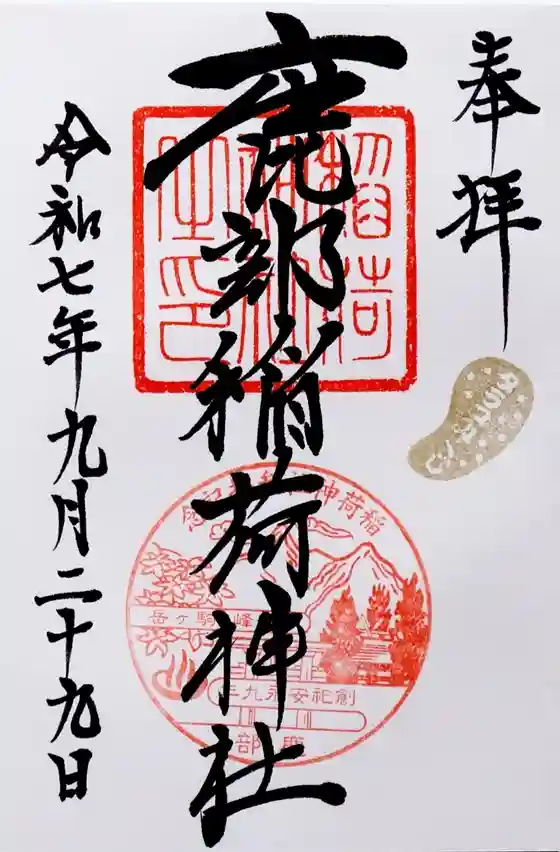 奉拝
鹿部稲荷神社
令和七年九月二十九日
稲荷
神社
之印
峰駒ケ岳
創祀安永九年
鹿部